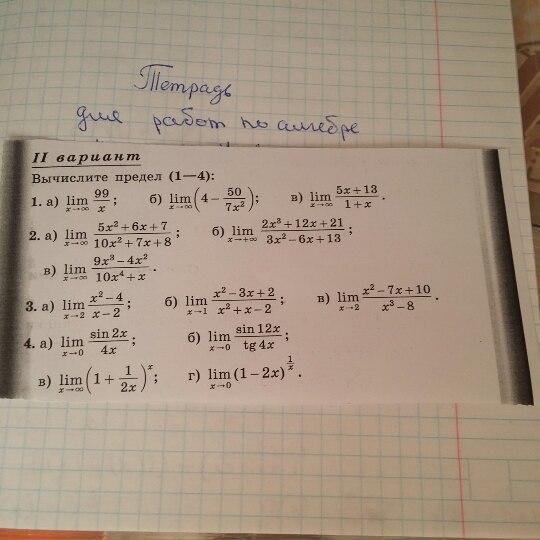 Тетрадь
для работ по алгебре
II вариант
Вычислите предел (1—4):
1. а) lim x→∞ 99/x; б) lim x→∞ (4 − 50/7x²); в) lim x→∞ (5x+13)/(1+x).
2. а) lim x→∞ (5x²+6x+7)/(10x²+7x+8); б) lim x→+∞ (2x³+12x+21)/(3x²−6x+13);
в) lim x→∞ (9x³−4x²)/(10x⁴+x).
3. а) lim x→2 (x²−4)/(x−2); б) lim x→1 (x²−3x+2)/(x²+x−2); в) lim x→2 (x²−7x+10)/(x³−8).
4. а) lim x→0 sin 2x/4x; б) lim x→0 sin 12x/tg 4x;
в) lim x→∞ (1 + 1/2x)ˣ; г) lim x→0 (1−2x)^(1/x).